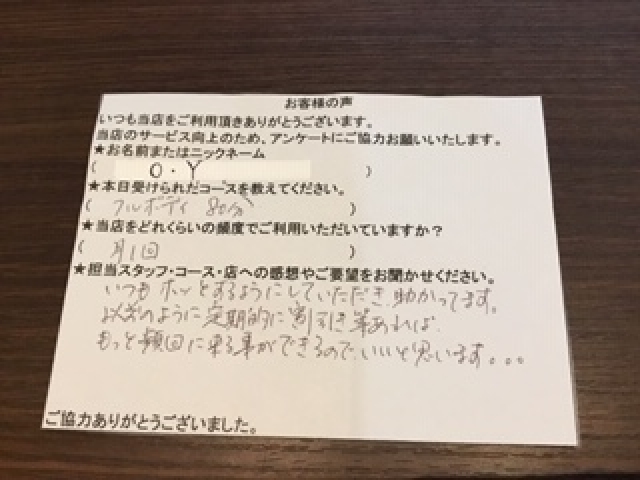 お客様の声
いつも当店をご利用頂きありがとうございます。
当店のサービス向上のため、アンケートにご協力お願いいたします。
★お名前またはニックネーム
( O・Y )
★本日受けられたコースを教えてください。
( フルボディ 80分 )
★当店をどれくらいの頻度でご利用いただいていますか?
( 月1回 )
★担当スタッフ・コース・店への感想やご要望をお聞かせください。
いつもホッとするようにしていただき、助かってます。
以前のように定期的に割引き等あれば
もっと頻回に来る事ができるので、いいと思います...
ご協力ありがとうございました。